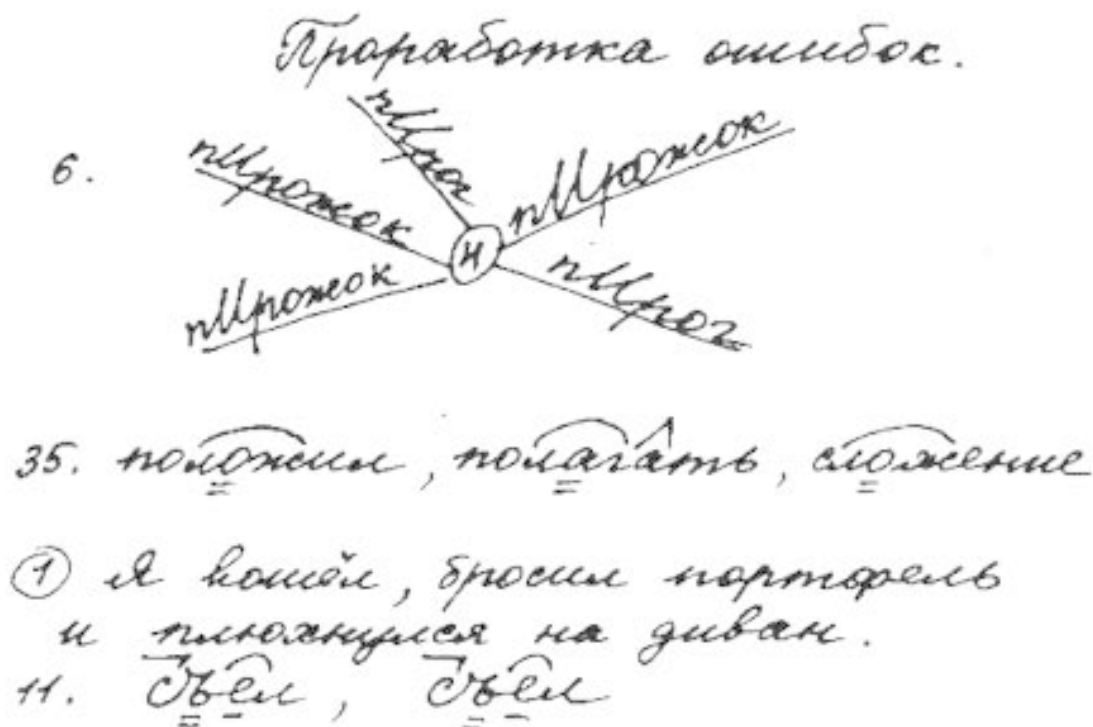 Проработка ошибок.
6.
пИрог
пИрожок
пИрожок
пИрожок
И
пИрог
35. положил, полагать, сложение
① Я вошёл, бросил портфель
и плюхнулся на диван.
11. Съел, Съел